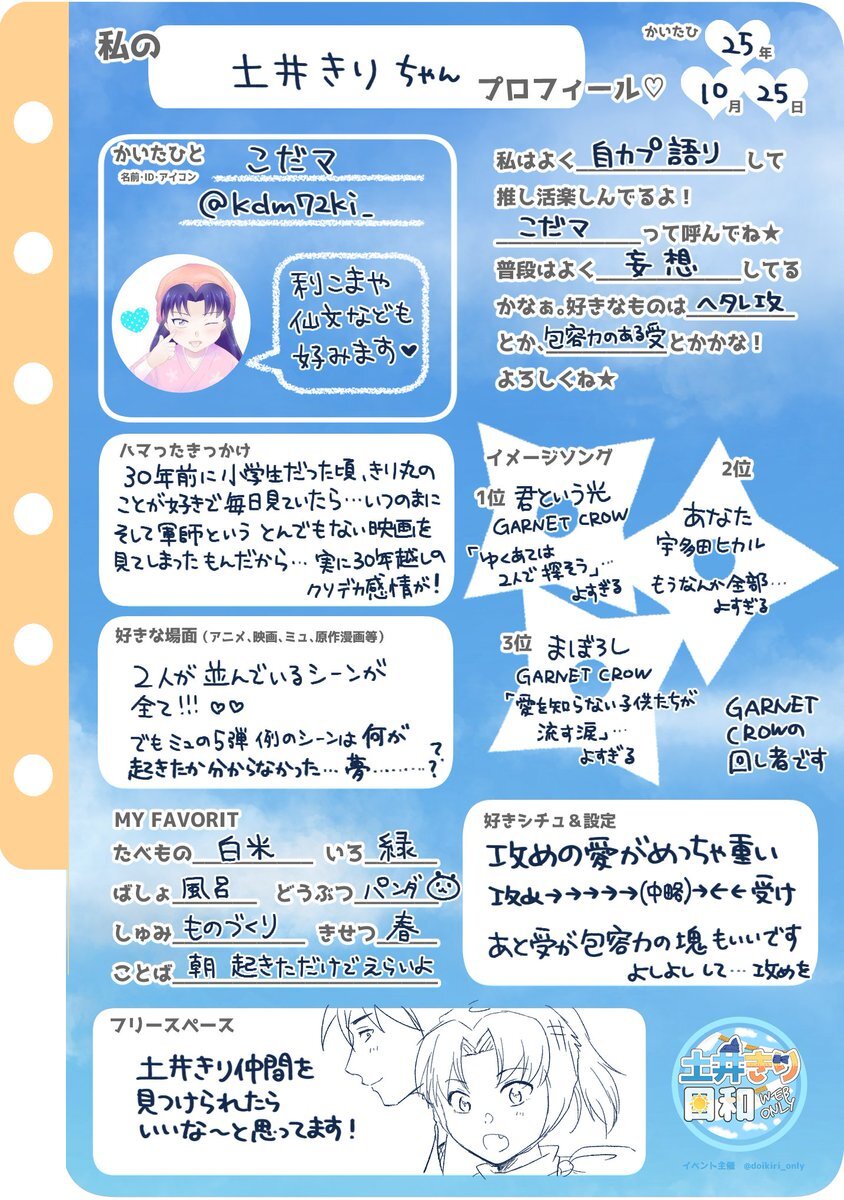 私の
土井きりちゃん
プロフィール♡
かいたひ
25年
10月25日
かいたひと
名前・ID・アイコン
こだマ
@kdm72ki_
利こまや
仙文なども
好みます♥
私はよく自カプ語りして
推し活楽しんでるよ！
こだマって呼んでね★
普段はよく妄想してる
かなぁ。好きなものはヘタレ攻
とか、包容力のある受とかかな！
よろしくね★
ハマったきっかけ
30年前に小学生だった頃、きり丸の
ことが好きで毎日見ていたら…いつのまに
そして軍師という とんでもない映画を
見てしまったもんだから… 実に30年越しの
クソデカ感情が!
イメージソング
1位 君という光
GARNET CROW
「ゆくあては
2人で探そう」…
よすぎる
2位
あなた
宇多田ヒカル
もうなんか全部…
よすぎる
3位 まぼろし
GARNET CROW
「愛を知らない子供たちが
流す涙」…
よすぎる
GARNET
CROWの
回し者です
好きな場面（アニメ、映画、ミュ、原作漫画等）
2人が並んでいるシーンが
全て!!! ♡♡
でもミュの5弾 例のシーンは何が
起きたか分からなかった… 夢………??
MY FAVORIT
たべもの 白米 いろ 緑
ばしょ 風呂 どうぶつ パンダ
しゅみ ものづくり きせつ 春
ことば 朝 起きただけでえらいよ
好きシチュ＆設定
攻めの愛がめっちゃ重い
攻め→→→→→→(中略)→←←受け
あと受が包容力の塊もいいです
よしよしして…攻めを
フリースペース
土井きり仲間を
見つけられたら
いいな～と思ってます!
土井きり
日和
WEB
ONLY
イベント主催 @doikiri_only